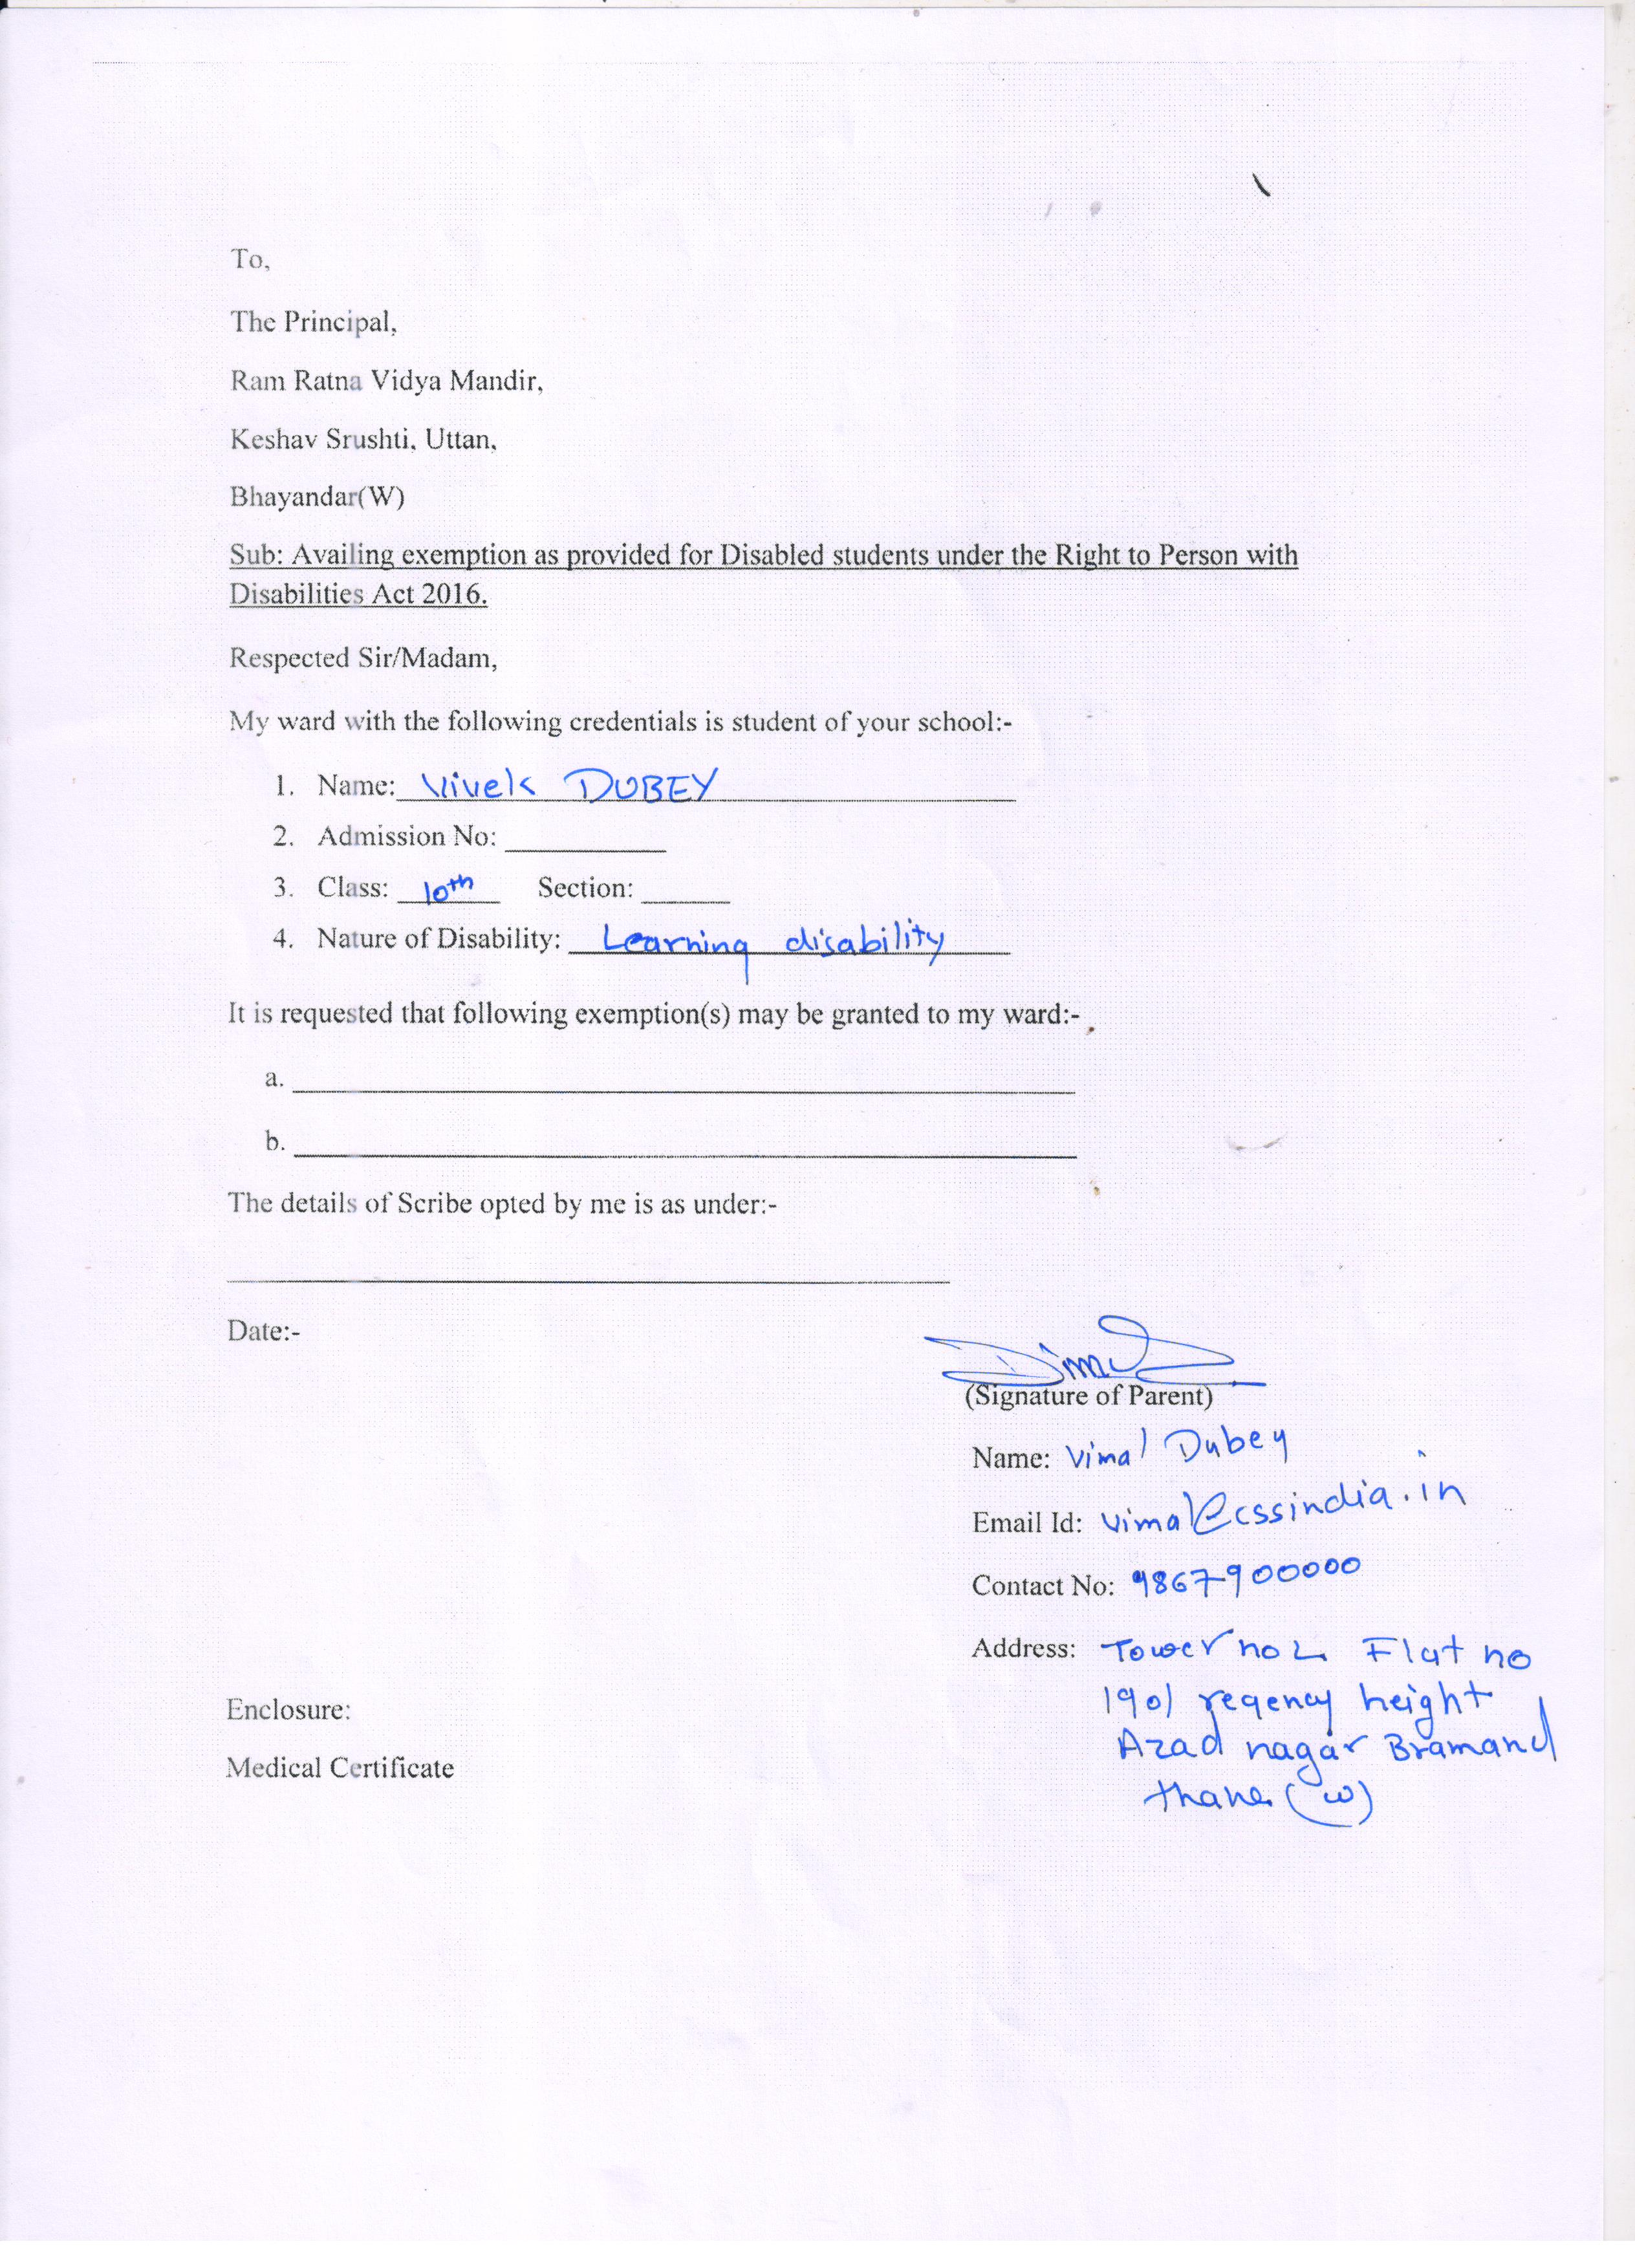 To,
The Principal,
Ram Ratna Vidya Mandir,
Keshav Srushti, Uttan,
Bhayandar(W)
Sub: Availing exemption as provided for Disabled students under the Right to Person with
Disabilities Act 2016.
Respected Sir/Madam,
My ward with the following credentials is student of your school:-
1. Name: Vivek DUBEY
2. Admission No: 
3. Class: 10th Section: 
4. Nature of Disability: Learning disability
It is requested that following exemption(s) may be granted to my ward:-
a.
b.
The details of Scribe opted by me is as under:-
Date:-
(Signature of Parent)
Name: Vimal Dubey
Email Id: vimal@cssindia.in
Contact No: 9867900000
Address: Tower no 2 Flat no
1901 regency height
Enclosure:
Azad nagar Bramand
Medical Certificate
thane (w)